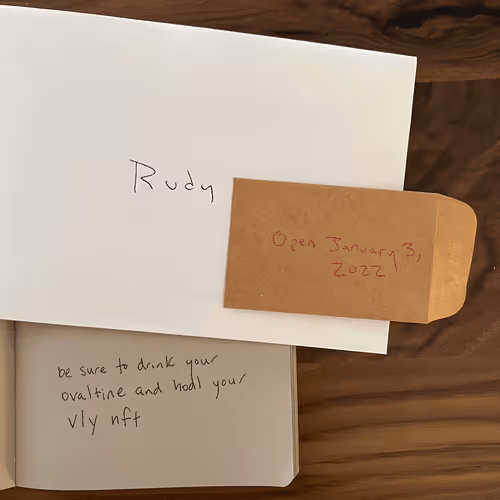 Rudy
Open January 3,
2022
be sure to drink your
ovaltine and hodl your
vly nft